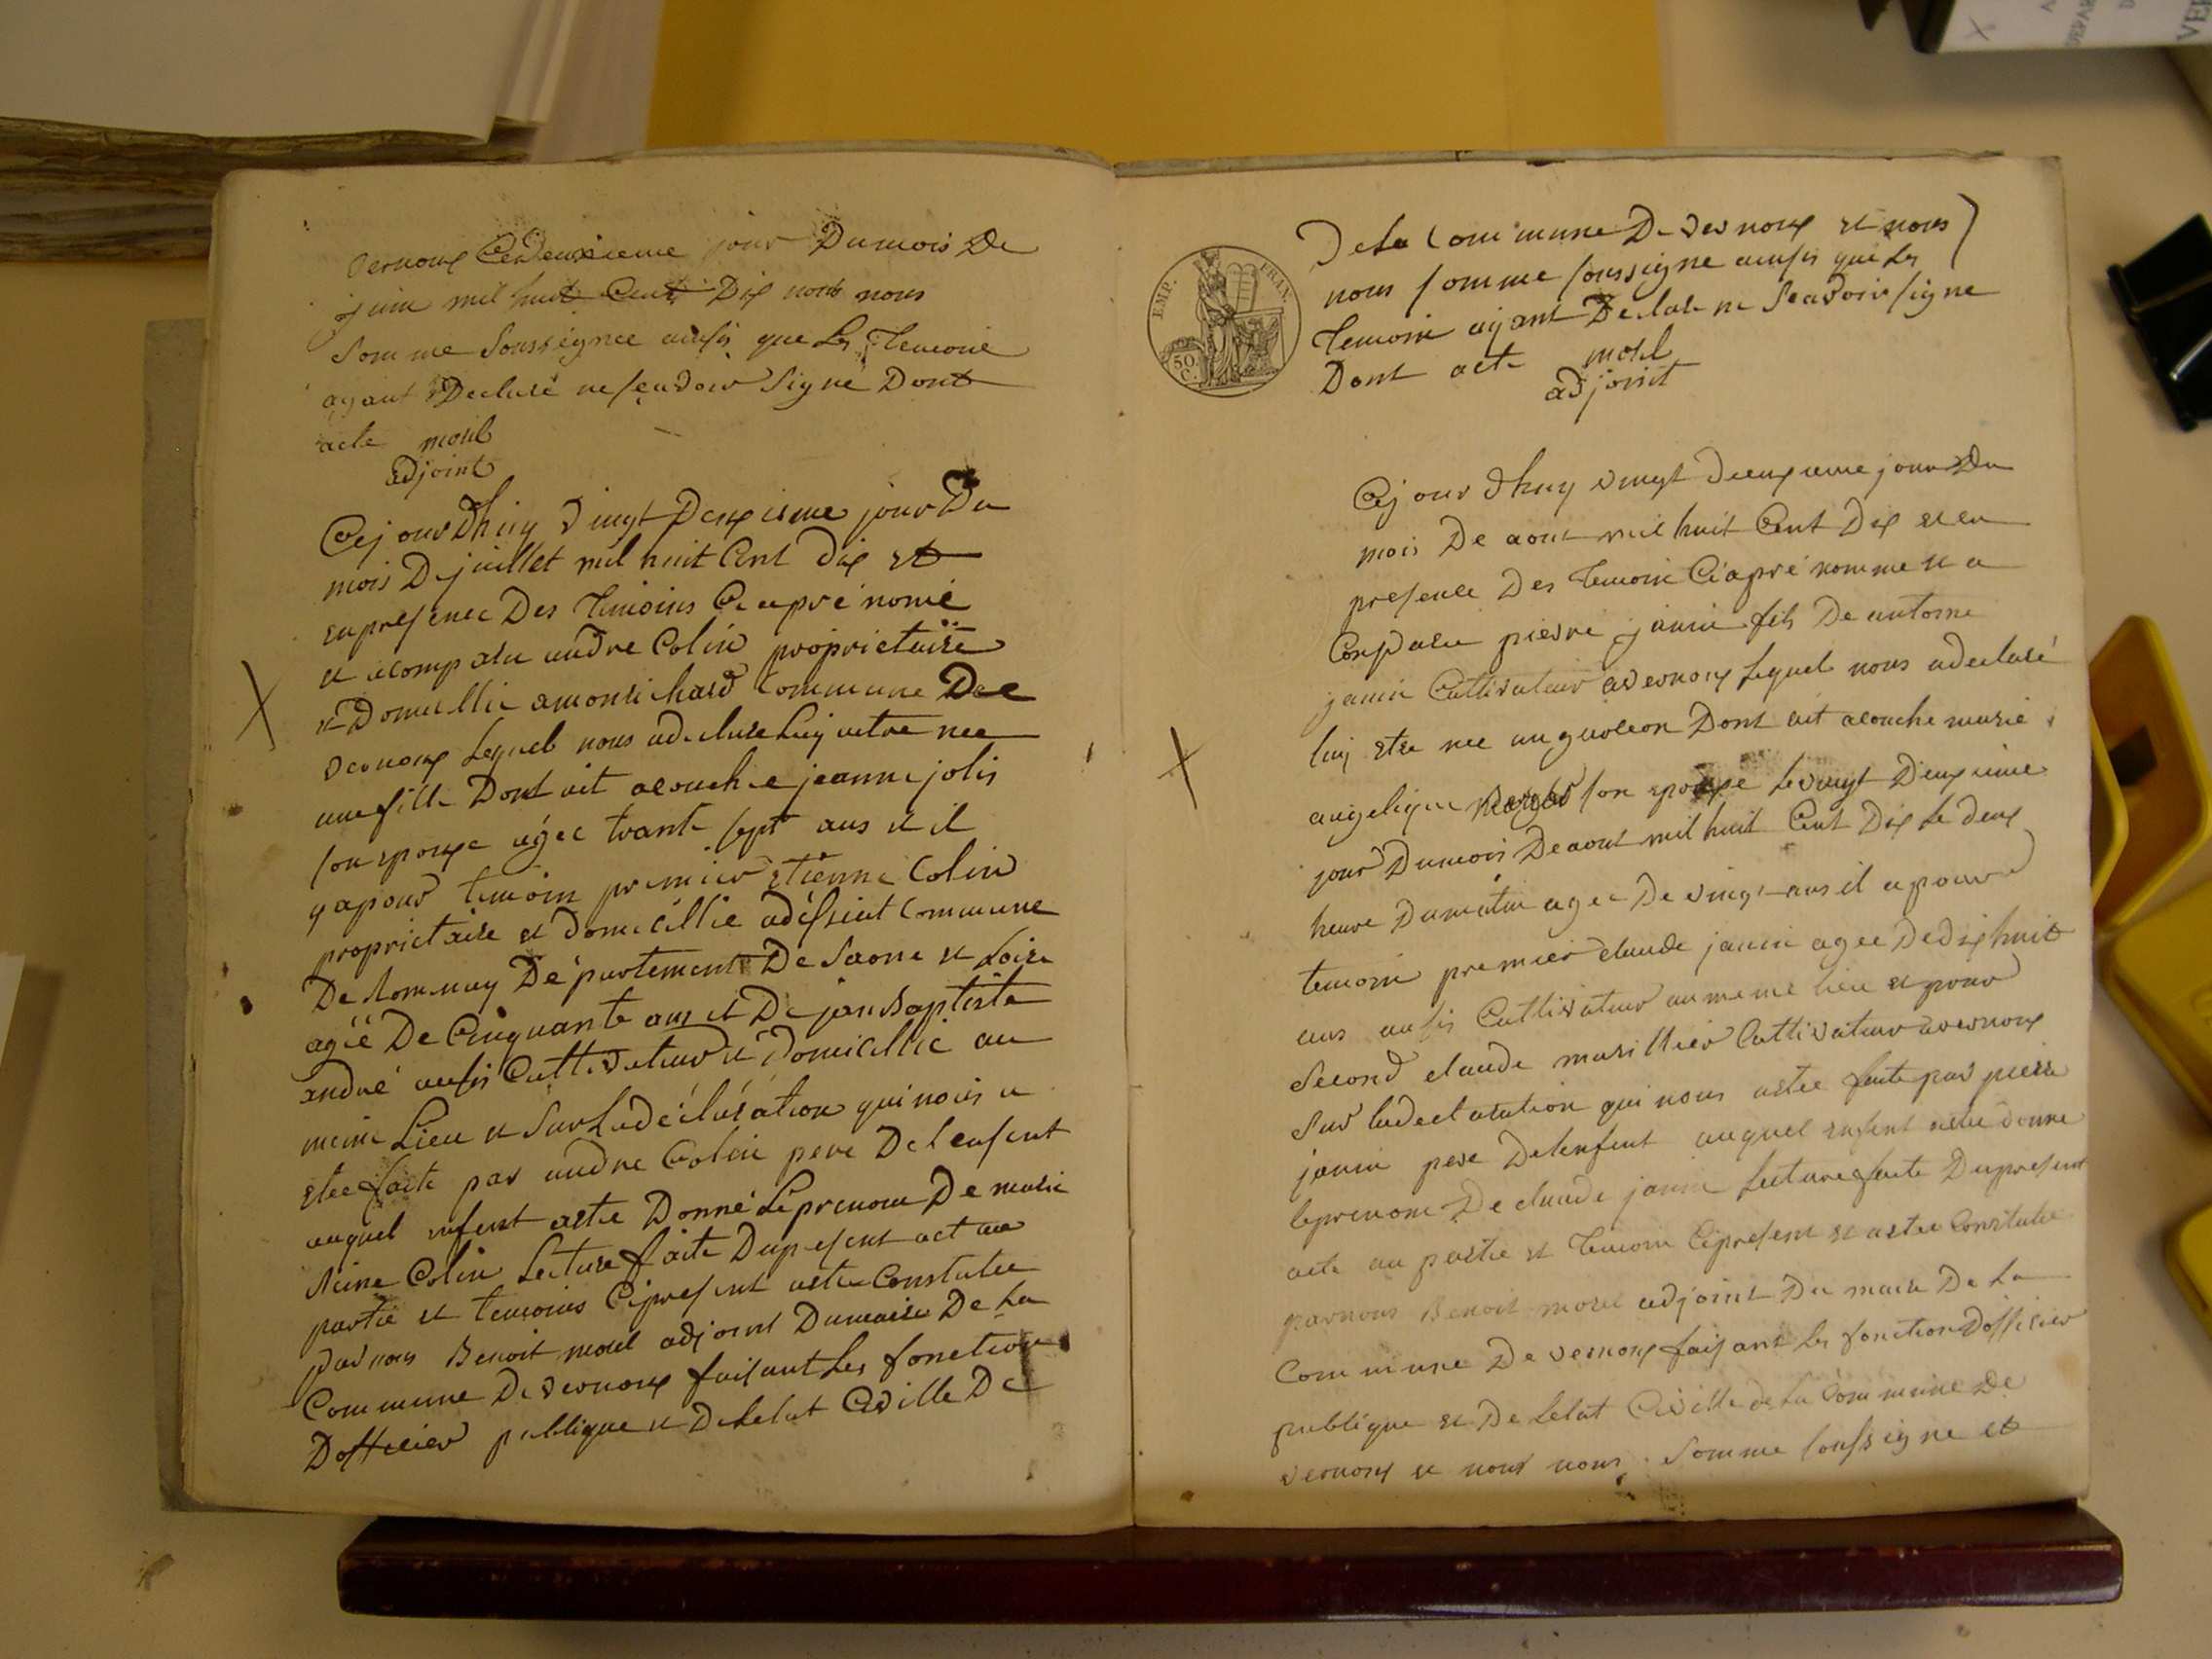 vernoux Ce deuxieme jour Dumois De
juin mil huit Cent Dix nous nous
Somme Soussignee ausis que Les Temoin
ayant Declaré ne scavoir Signé Dont
acte morel
adjoint
Cejourdhuy vingt Deuxieme jour Du
mois De juillet mil huit Cent dix et
en presence Des Temoins Ci apré nomé
a comparu andre Colin proprietaire
et Domicillie a monrichard Commune De
vernoux Lequel nous a declare luy aitre nee
une fille Dont ait acouchee jeanne jolis
son epouse agee trante sept ans et il
y a pour temoin premier etienne Colin
proprietaire et domicillie Commune
De Romenay Département De Saone et Loire
agéé De Cinquante ans et De jan Baptiste
andré ausis Cultivateur et Domicillié au
meme Lieu et Sur La déclaration qui nous a
etee faite par andre Colin pere De Lenfent
auquel enfent aetre Donné Le prenom De marie
Reine Colin Lecture faite Du present act au
partie et temoins Cy present aetre Constatee
par nous Benoit morel adjoint Dumaire De La
Commune De vernoux faisant Les fonction
Dofficier publique et De Letat Civille De
EMP. FRAN.
50 C.
De La Commune De vernoux et nous
nous somme soussigne ausis que Les
Temoin aijant Declare ne Scavoir signe
Dont acte morel
adjoint
Cejourdhuy vingt Deuxieme jour Du
mois De aout mil huit Cent Dix et en
presence Des Temoin Ci apré nomme et a
Conparu pierre janin fils De antoine
janin Cultivateur a vernoux Lequel nous a declaré
luy etre nee un guarceon Dont ait acouche marie
angelique son epouxe Le vingt Deuxieme
jour Dumois De aout mil huit Cent Dix Le deux
heure Dumatin agee De vingt ans il a pour
temoin premier claude janin agee De dixhuit
ans ausis Cultivateur au meme lieu et pour
Second claude marillier Cultivateur a vernoux
Sur la declaration qui nous aetee faite par pierre
janin pere De lenfent auquel enfent aetre donne
le prenom De claude janin Lecture faite Du present
acte au partie et Temoin Cy present et aetee Constatee
par nous Benoit morel adjoint Du maire De La
Commune De vernoux faisant Les fonction Dofficier
publique et De Letat Civille de La Commune De
vernoux et nous nous Somme soussigne et